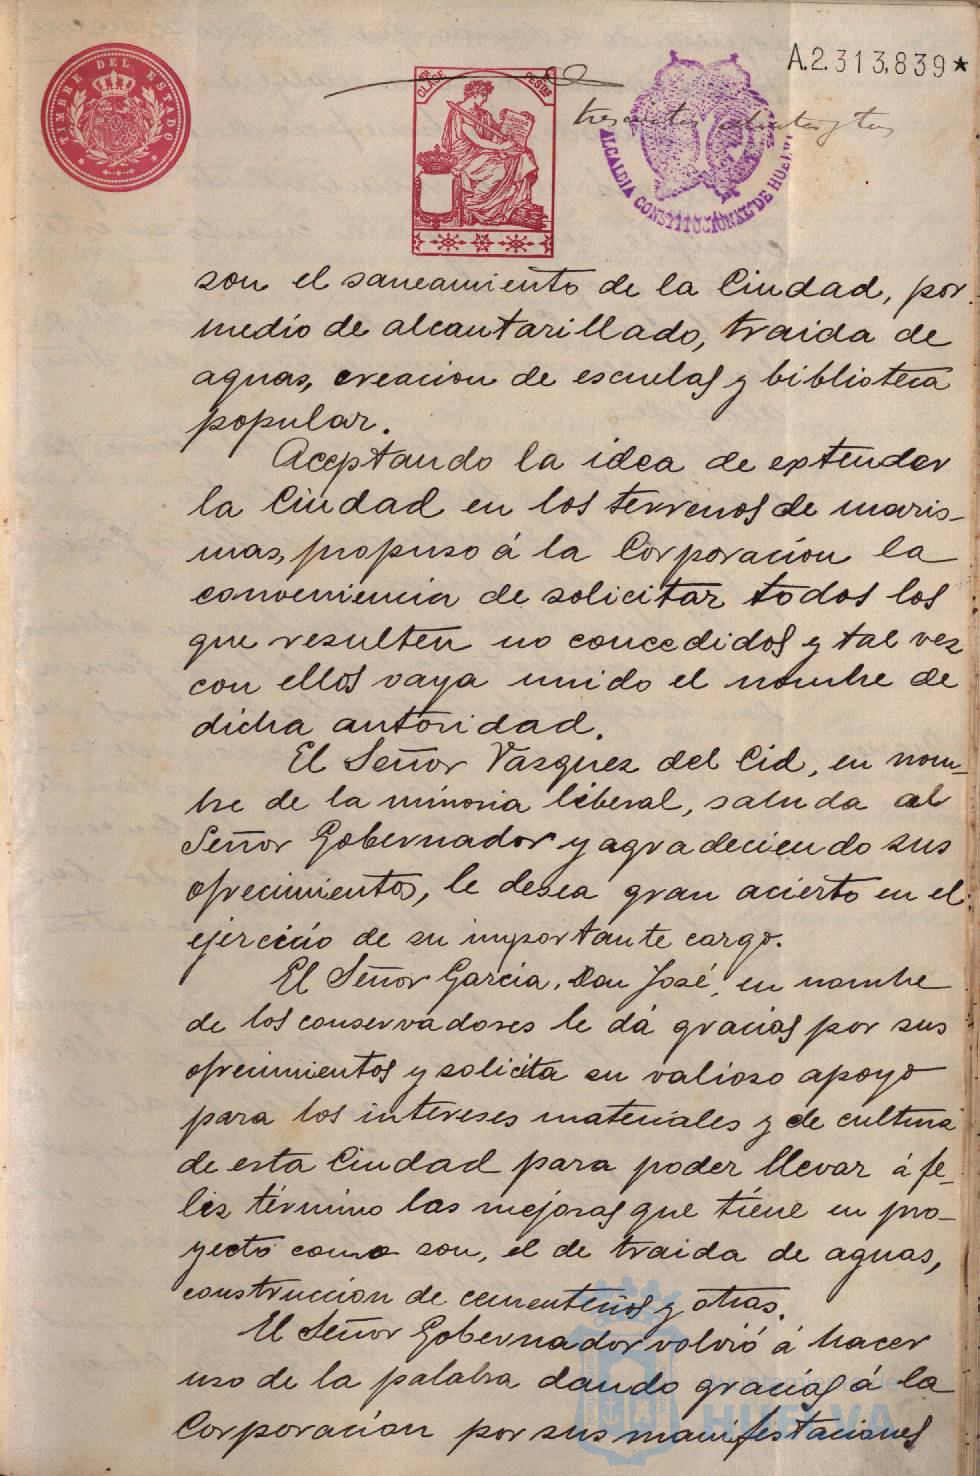 TIMBRE DEL ESTADO
CLASE PESETAS
A.2.313,839★
ALCALDIA CONSTITUCIONAL DE HUELVA
son el saneamiento de la Ciudad, por
medio de alcantarillado, traida de
aguas, creacion de escuelas y biblioteca
popular.
Aceptando la idea de extender
la Ciudad en los terrenos de maris-
mas, propuso á la Corporacion la
conveniencia de solicitar todos los
que resulten no concedidos y tal vez
con ellos vaya unido el nombre de
dicha autoridad.
El Señor Vazquez del Cid, en nom-
bre de la minoria liberal, saluda al
Señor Gobernador y agradeciendo sus
ofrecimientos, le desea gran acierto en el
ejercicio de su importante cargo.
El Señor Garcia, Don José, en nombre
de los conservadores le dá gracias por sus
ofrecimientos y solicita su valioso apoyo
para los intereses materiales y de cultura
de esta Ciudad para poder llevar á fe-
liz término las mejoras que tiene en pro-
yecto como son, el de traida de aguas,
construccion de cementerios y otras.
El Señor Gobernador volvió á hacer
uso de la palabra dando gracias á la
Corporacion por sus manifestaciones
Ayuntamiento de
HUELVA